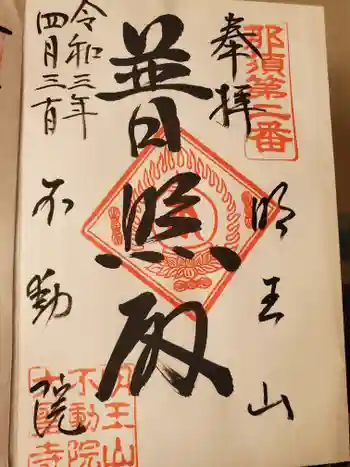 奉拝
那須第二番
明王山
普照殿
令和三年
四月三百
不動院
明王山
不動院
寺